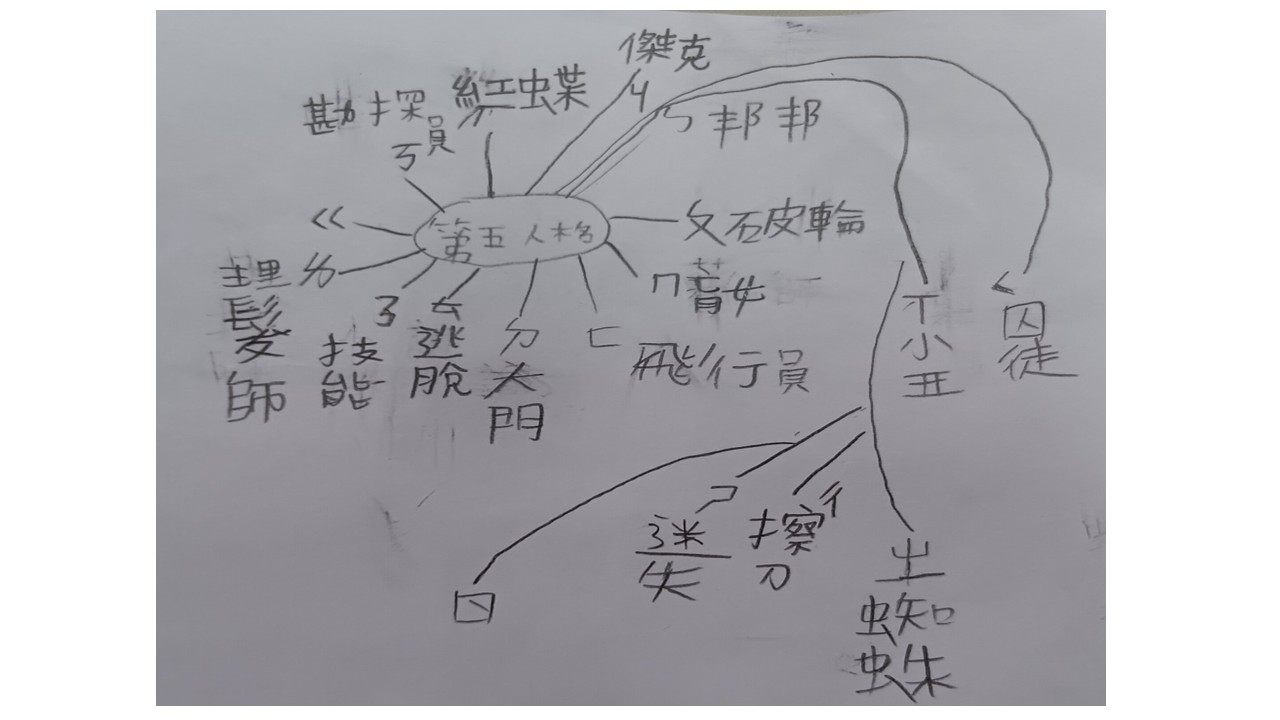 傑克
ㄐ
紅虫葉
勘探員
ㄎ
ㄎ邦邦
第五人格
ㄍ
ㄆ石皮輪
ㄇ盲女
ㄈ
飛行員
ㄉ
大門
ㄊ
逃脫
ㄋ
技能
ㄌ
理髮師
ㄒ
小丑
ㄑ
囚徒
ㄖ
ㄗ
迷失
ㄔ
擦刀
ㄓ
蜘蛛